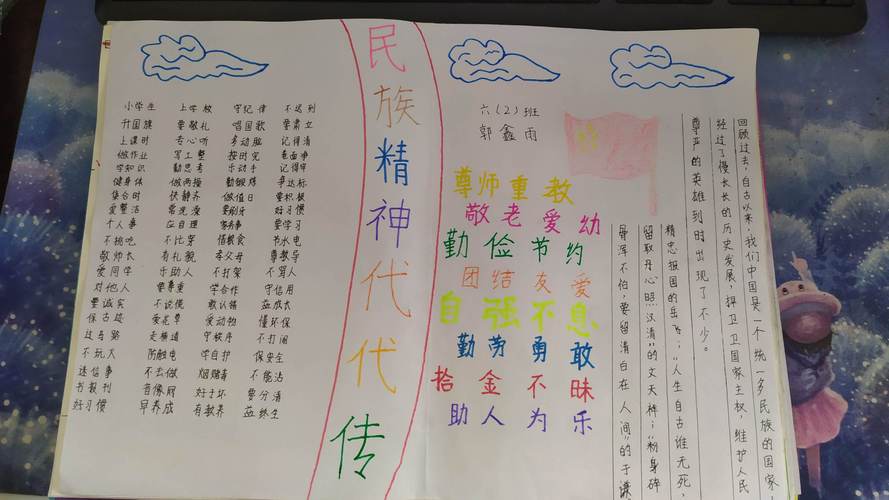 小学生 上学校 守纪律 不迟到
升国旗 要敬礼 唱国歌 要肃立
上课时 专心听 多动脑 记得清
做作业 写工整 按时完 卷面净
学知识 勤思考 乐动手 记得牢
健身体 做两操 勤锻炼 争达标
集合时 快静齐 做值日 要积极
爱整洁 常洗澡 要刷牙 好习惯
个人事 应自理 家务事 要学习
不挑吃 不比穿 惜粮食 节水电
敬师长 有礼貌 孝父母 尊教导
爱同学 乐助人 不打架 不骂人
对他人 要尊重 学合作 守信用
要诚实 不说谎 敢认错 益成长
保古迹 爱花草 爱动物 懂环保
过马路 走横道 守秩序 不打闹
不玩火 防触电 学自护 保安全
迷信事 不去做 烟赌毒 不能沾
书报刊 音像厨 好与坏 要分清
好习惯 早养成 有教养 益终生
民族精神代代传
六(2)班
郭鑫雨
尊师重教
敬老爱幼
勤俭节约
团结友爱
自强不息
勤劳勇敢
拾金不昧
助人为乐
回顾过去,自古以来,我们中国是一个统一多民族的国家
经过了慢长长的历史发展,捍卫卫国家主权,维护人民
尊严的英雄到时出现了不少。
精忠报国的岳飞;“人生自古谁无死,
留取丹心照汉清”的文天祥;“粉身碎
骨浑不怕,要留清白在人间”的于谦